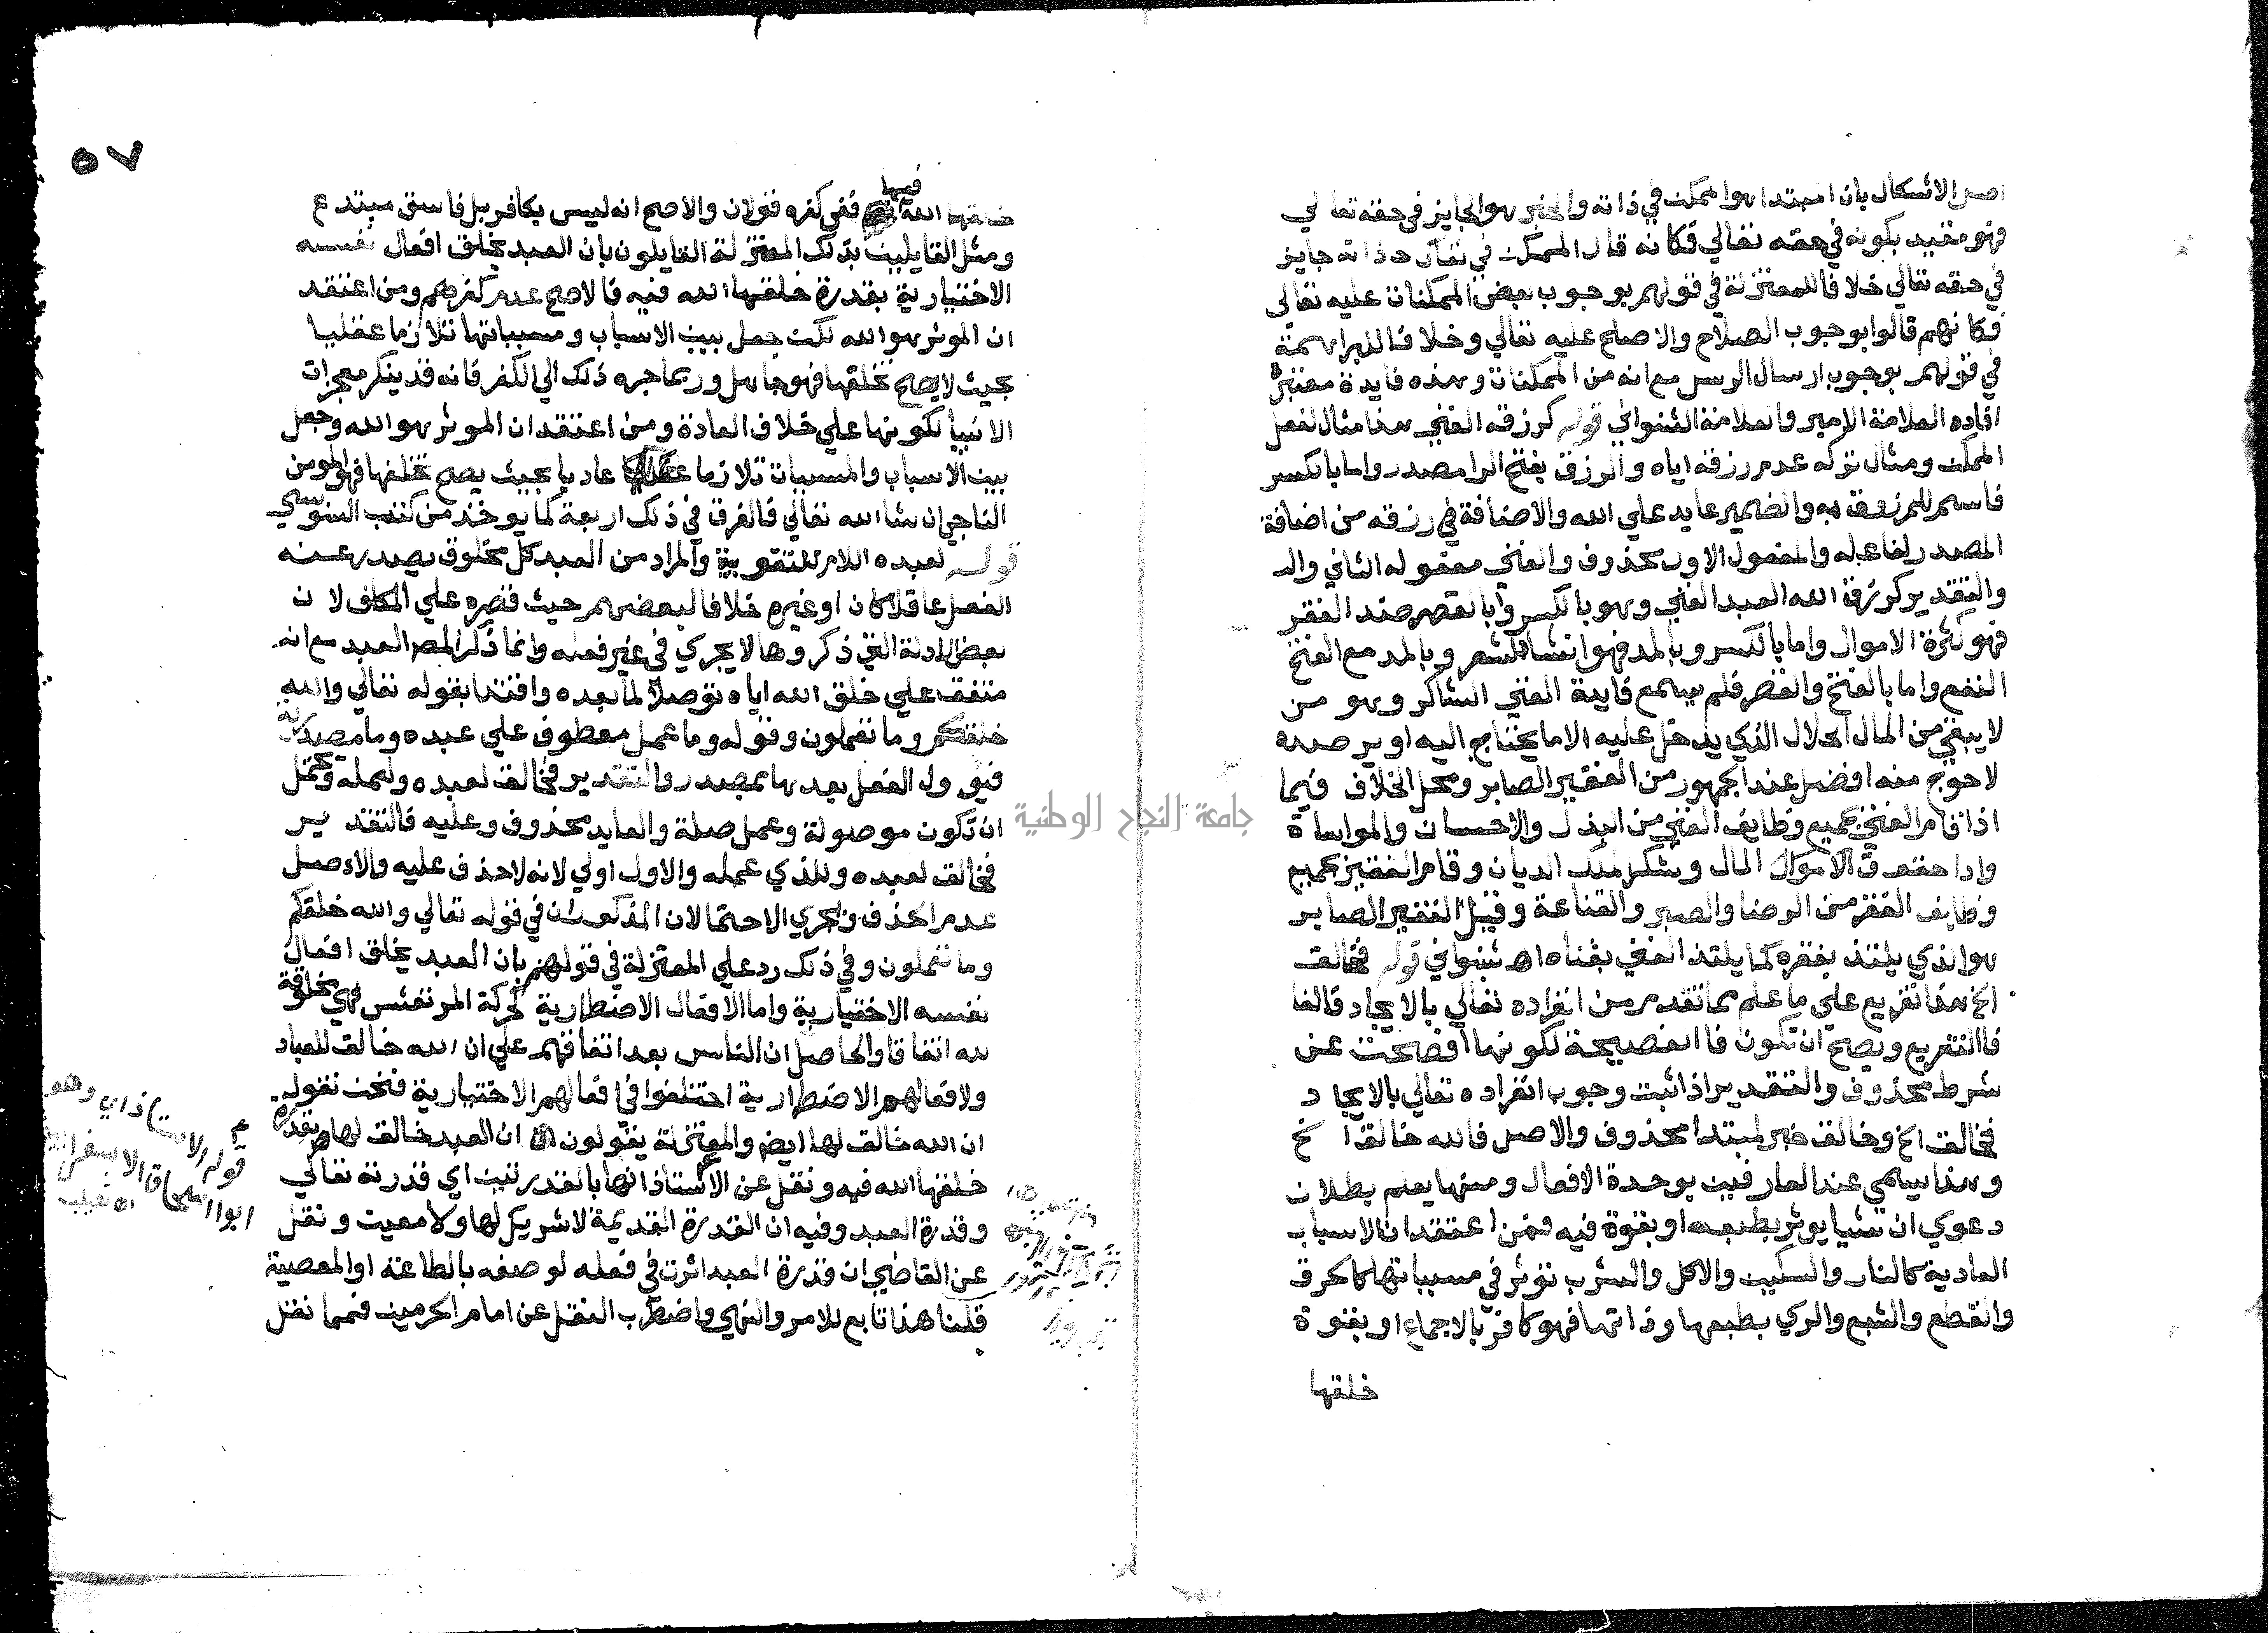 اصل الاشكال بان المبتدا هو الممكن في ذاته والخبر هو الجايز في حقه تعالي
فهو مقيد بكونه في حقه تعالي فكانه قال الممكن في حد ذاته جايز
في حقه تعالي خلافا للمعتزلة في قولهم بوجوب بعض الممكنات عليه تعالي
فكانهم قالوا بوجوب الصلاح والاصلح عليه تعالي وخلافا للبراهمة
في قولهم بوجوب ارسال الرسل مع انه من الممكنات وهذه فايدة معتبرة
افاده العلامة الامير والعلامة الشنواني قوله كرزقه الغني هذا مثال لفعل
الممكن ومثال تركه عدم رزقه اياه والرزق بفتح الرا مصدر واما بالكسر
فاسم للمرزوق به والضمير عايد علي الله والاضافة في رزقه من اضافة
المصدر لفاعله والمفعول الاول محذوف والغني مفعوله الثاني وال
والتقدير كرزق الله العبد الغني وهو بالكسر وبالقصر ضد الفقر
فهو كثرة الاموال واما بالكسر وبالمد فهو انشاد الشعر وبالمد مع الفتح
النفع واما بالفتح والقصر فلم يسمع فايدة الغني الشاكر وهو من
لا يبقي من المال الحلال الذي يدخل عليه الا ما يحتاج اليه او يرصده
لاحوج منه افضل عند الجمهور من الفقير الصابر ومحل الخلاف فيما
اذا قام الغني بجميع وظايف الغني من البذل والاحسان والمواساة
وادا حقوق الاموال المال وشكر الملك الديان وقام الفقير بجميع
وظايف الفقر من الرضا والصبر والقناعة وقيل الفقير الصابر
هو الذي يلتذ بفقره كما يلتذ الغني بغناه اه شنواني قوله فخالق
الخ هذا تفريع علي ما علم مما تقدم من انفراده تعالي بالايجاد فالفا
فا التفريع ويصح ان تكون فا الفصيحة لكونها افصحت عن
شرط محذوف والتقدير اذا ثبت وجوب انفراده تعالي بالايجاد
فخالق الخ وخالق خبر لمبتدا محذوف والاصل فالله خالق الخ
وهذا يسمي عند العارفين بوحدة الافعال ومنها يعلم بطلان
دعوي ان شيا يوثر بطبعه او بقوة فيه فمن اعتقد ان الاسباب
العادية كالنار والسكين والاكل والشرب توثر في مسبباتها كالحرق
والقطع والشبع والري بطبعها وذاتها فهو كافر بالاجماع او بقوة
خلقها
٥٧
خلقها الله فيها ففي كفره قولان والاصح انه ليس بكافر بل فاسق مبتدع
ومثل القايلين بذلك المعتزلة القايلون بان العبد يخلق افعال نفسه
الاختيارية بقدرة خلقها الله فيه فالاصح عدم كفرهم ومن اعتقد
ان الموثر هو الله لكن جعل بين الاسباب ومسبباتها تلازما عقليا
بحيث لا يصح تخلفها فهو جاهل وربما جره ذلك الي الكفر فانه قد ينكر معجزات
الانبيا لكونها علي خلاف العادة ومن اعتقد ان الموثر هو الله وجعل
بين الاسباب والمسببات تلازما عاديا بحيث يصح تخلفها فهو المومن
الناجي ان شا الله تعالي فالفرق في ذلك اربعة كما يوخذ من كتب السنوسي
قوله لعبده اللام للتقوية والمراد من العبد كل مخلوق يصدر عنه
الفعل عاقلا كان او غيره خلافا لبعضهم حيث قصره علي المكلف لان
بعض الادلة التي ذكروها لا يجري في غير فعله وانما ذكر المص العبد مع انه
متفق علي خلق الله اياه توصلا لما بعده واقتدا بقوله تعالي والله
خلقكم وما تعملون وقوله وما عمل معطوف علي عبده وما مصدرية
فيوول الفعل بعدها بمصدر والتقدير فخالق لعبده ولعمله ويحتمل
ان تكون موصولة وعمل صلة والعايد محذوف وعليه فالتقدير
فخالق لعبده وللذي عمله والاول اولي لانه لا حذف عليه والاصل
عدم الحذف ويجري الاحتمالان المذكوران في قوله تعالي والله خلقكم
وما تعملون وفي ذلك رد علي المعتزلة في قولهم بان العبد يخلق افعال
نفسه الاختيارية واما الافعال الاضطارية كحركة المرتعش فهي مخلوقة
لله اتفاقا والحاصل ان الناس بعد اتفاقهم علي ان الله خالق للعباد
ولافعالهم الاضطارية اختلفوا في افعالهم الاختيارية فنحن نقول
ان الله خالق لها ايض والمعتزلة يقولون ان العبد خالق لها بقدرة
خلقها الله فيه ونقل عن الاستاذ انها بالقدرتين اي قدرته تعالي
وقدرة العبد وفيه ان القدرة القديمة لا شريك لها ولا معين ونقل
عن القاضي ان قدرة العبد اثرت في فعله لوصفه بالطاعة او المعصية
قلنا هذا تابع للامر والنهي واضطرب النقل عن امام الحرمين فمما نقل
قوله الاستاذ اي وهو
ابوا اسحاق الاسفرايني
جامعة النجاح الوطنية